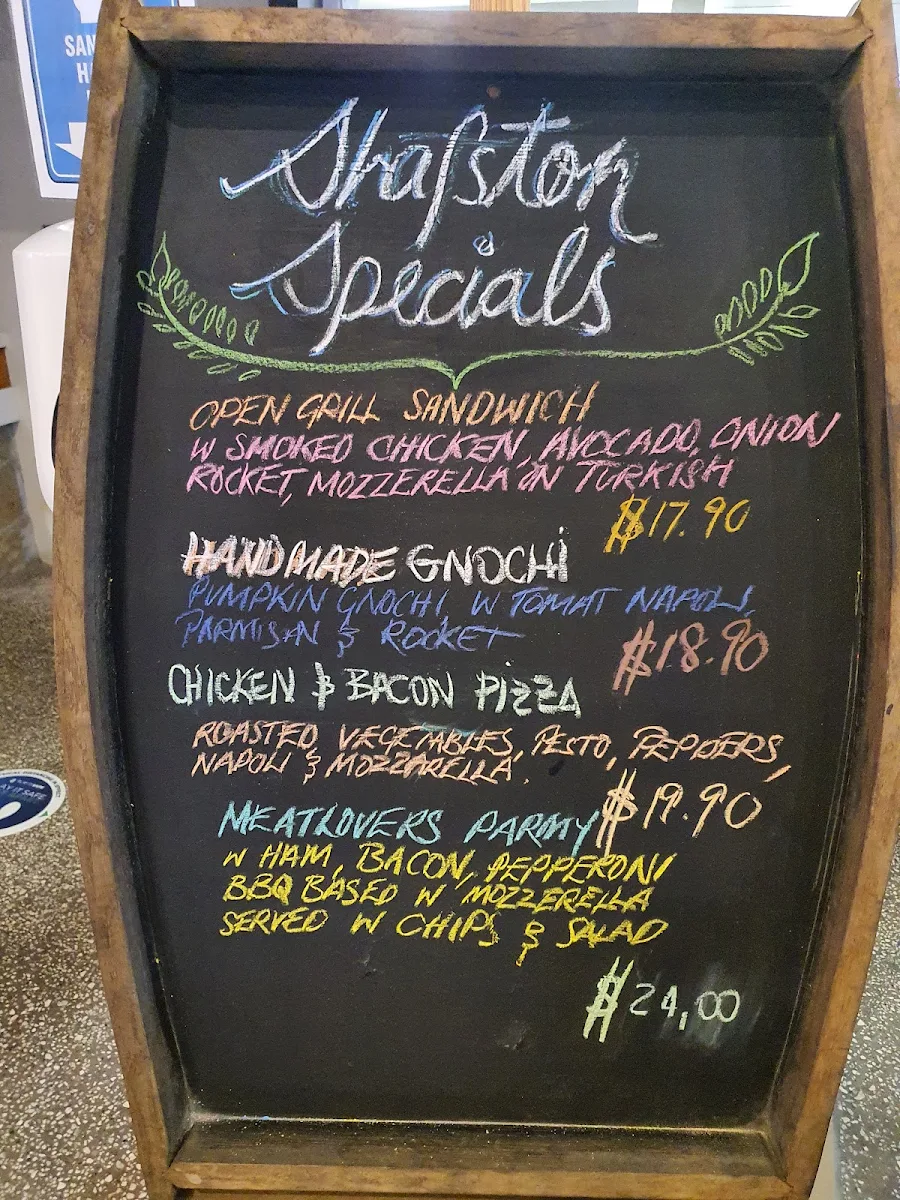 SAN
H
Shafston
Specials
OPEN GRILL SANDWICH
W SMOKED CHICKEN, AVOCADO, ONION
ROCKET, MOZZERELLA ON TURKISH
$17.90
HANDMADE GNOCHI
PUMPKIN GNOCHI, W TOMAT NAPOLI,
PARMISAN & ROCKET
$18.90
CHICKEN & BACON PIZZA
ROASTED VEGETABLES, PESTO, PEPPERS,
NAPOLI & MOZZARELLA.
$19.90
MEATLOVERS PARMY
W HAM, BACON, PEPPERONI
BBQ BASED W MOZZERELLA
SERVED W CHIPS & SALAD
$24,00